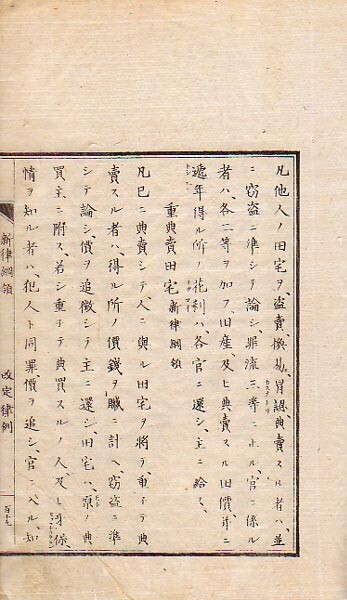 凡他人ノ田宅ヲ、盗賣、換易、冐認、典賣スル者ハ、並
ニ窃盗ニ準シテ論シ、罪流三等ニ止ル、官ニ係ル
者ハ、各二等ヲ加フ、旧産、及ヒ典賣スル旧價、并ニ
遞年得ル所ノ花利ハ、各官ニ還シ、主ニ給ス、
重典賣田宅 新律綱領
凡已ニ典賣シテ、人ニ與ル田宅ヲ將テ、重子テ典
賣スル者ハ、得ル所ノ價錢ヲ贓ニ計ヘ、窃盗ニ準
シテ論シ、價ヲ追徴シテ主ニ還シ、田宅ハ、原ノ典
買主ニ附ス、若シ重子テ典買スルノ人、及ヒ牙保、
情ヲ知ル者ハ、犯人ト同罪價ヲ追シ官ニ入ル、知
新律綱領 改定律例